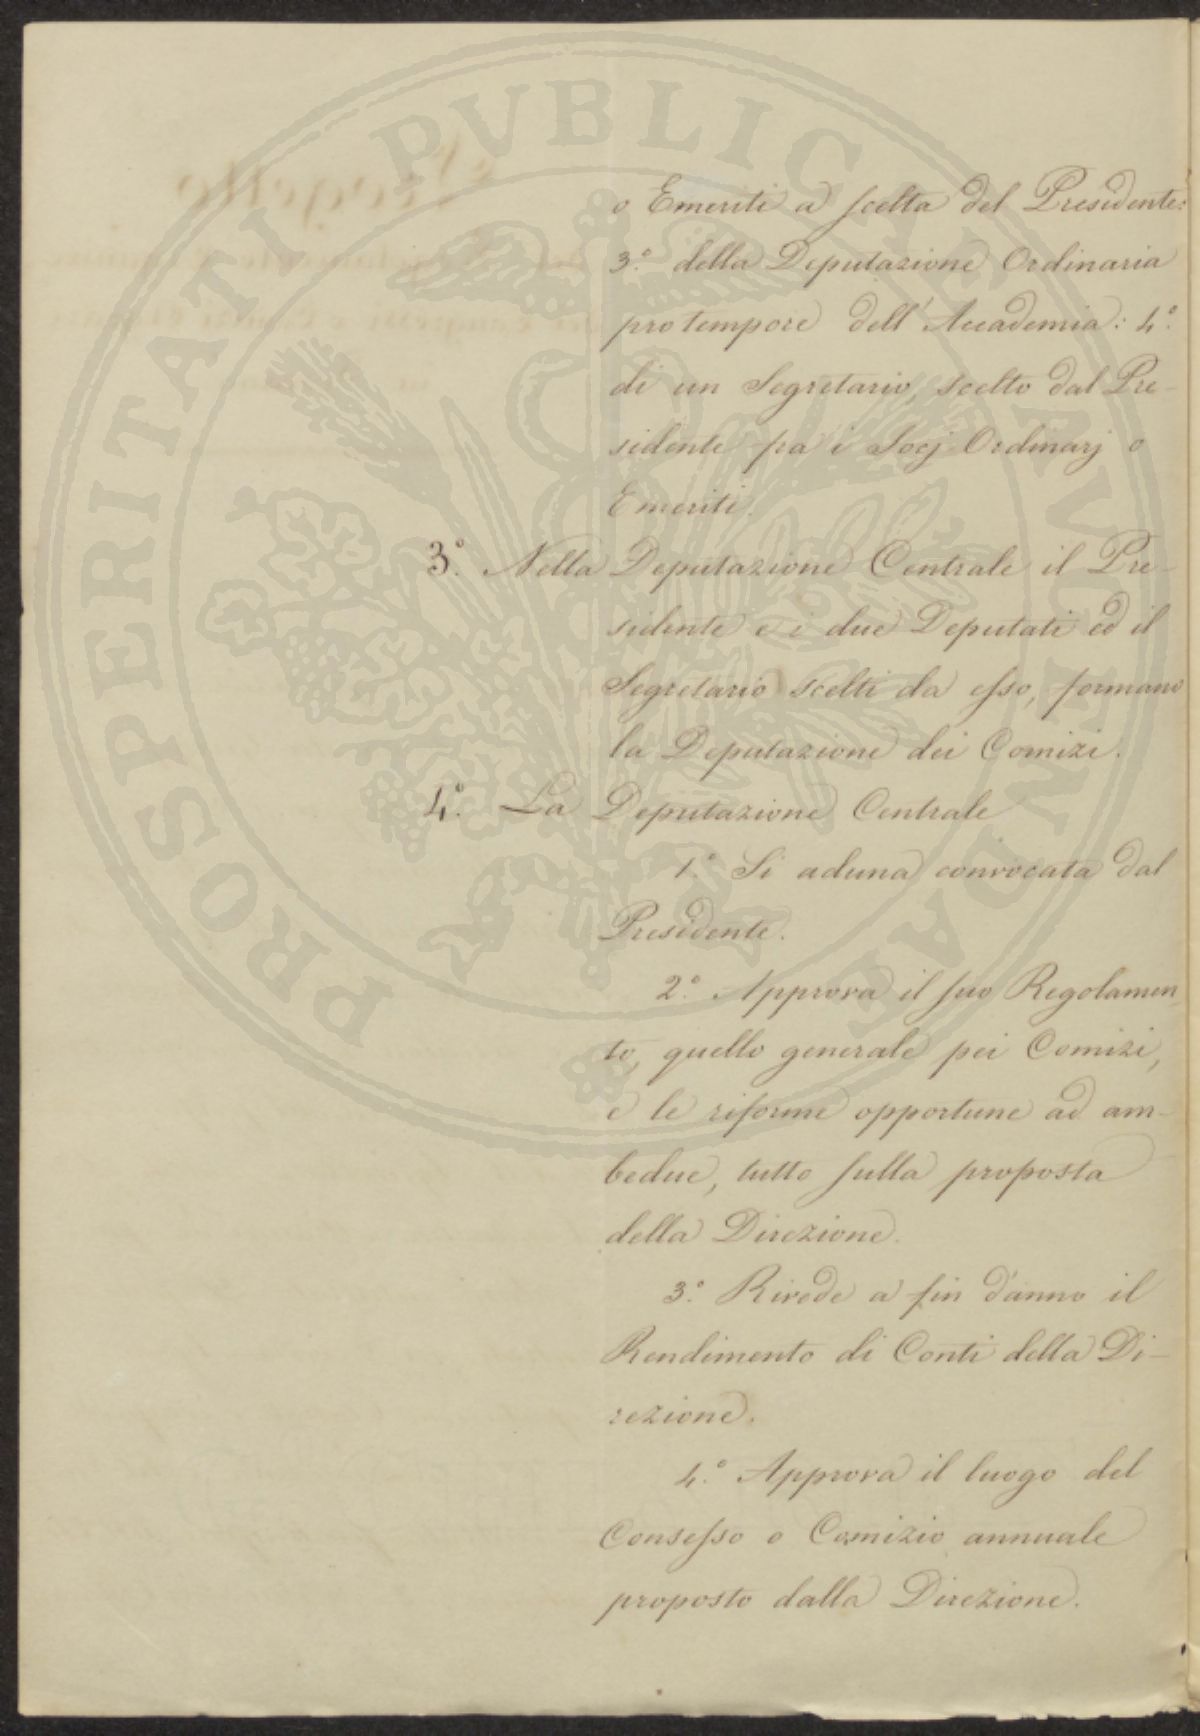 PROSPERITATI PUBLICAE AUGENDAE
o Emeriti a scelta del Presidente:
3.° della Deputazione Ordinaria
pro tempore dell'Accademia: 4.°
di un Segretario, scelto dal Pre-
sidente fra i Socj Ordinarj o
Emeriti.
3.° Nella Deputazione Centrale il Pre-
sidente e i due Deputati ed il
Segretario scelti da esso, formano
la Deputazione dei Comizi.
4.° La Deputazione Centrale
1.° Si aduna convocata dal
Presidente.
2.° Approva il suo Regolamen-
to, quello generale pei Comizi,
e le riforme opportune ad am-
bedue, tutto sulla proposta
della Direzione.
3.° Rivede a fin d'anno il
Rendimento di Conti della Di-
rezione.
4.° Approva il luogo del
Consesso o Comizio annuale
proposto dalla Direzione.